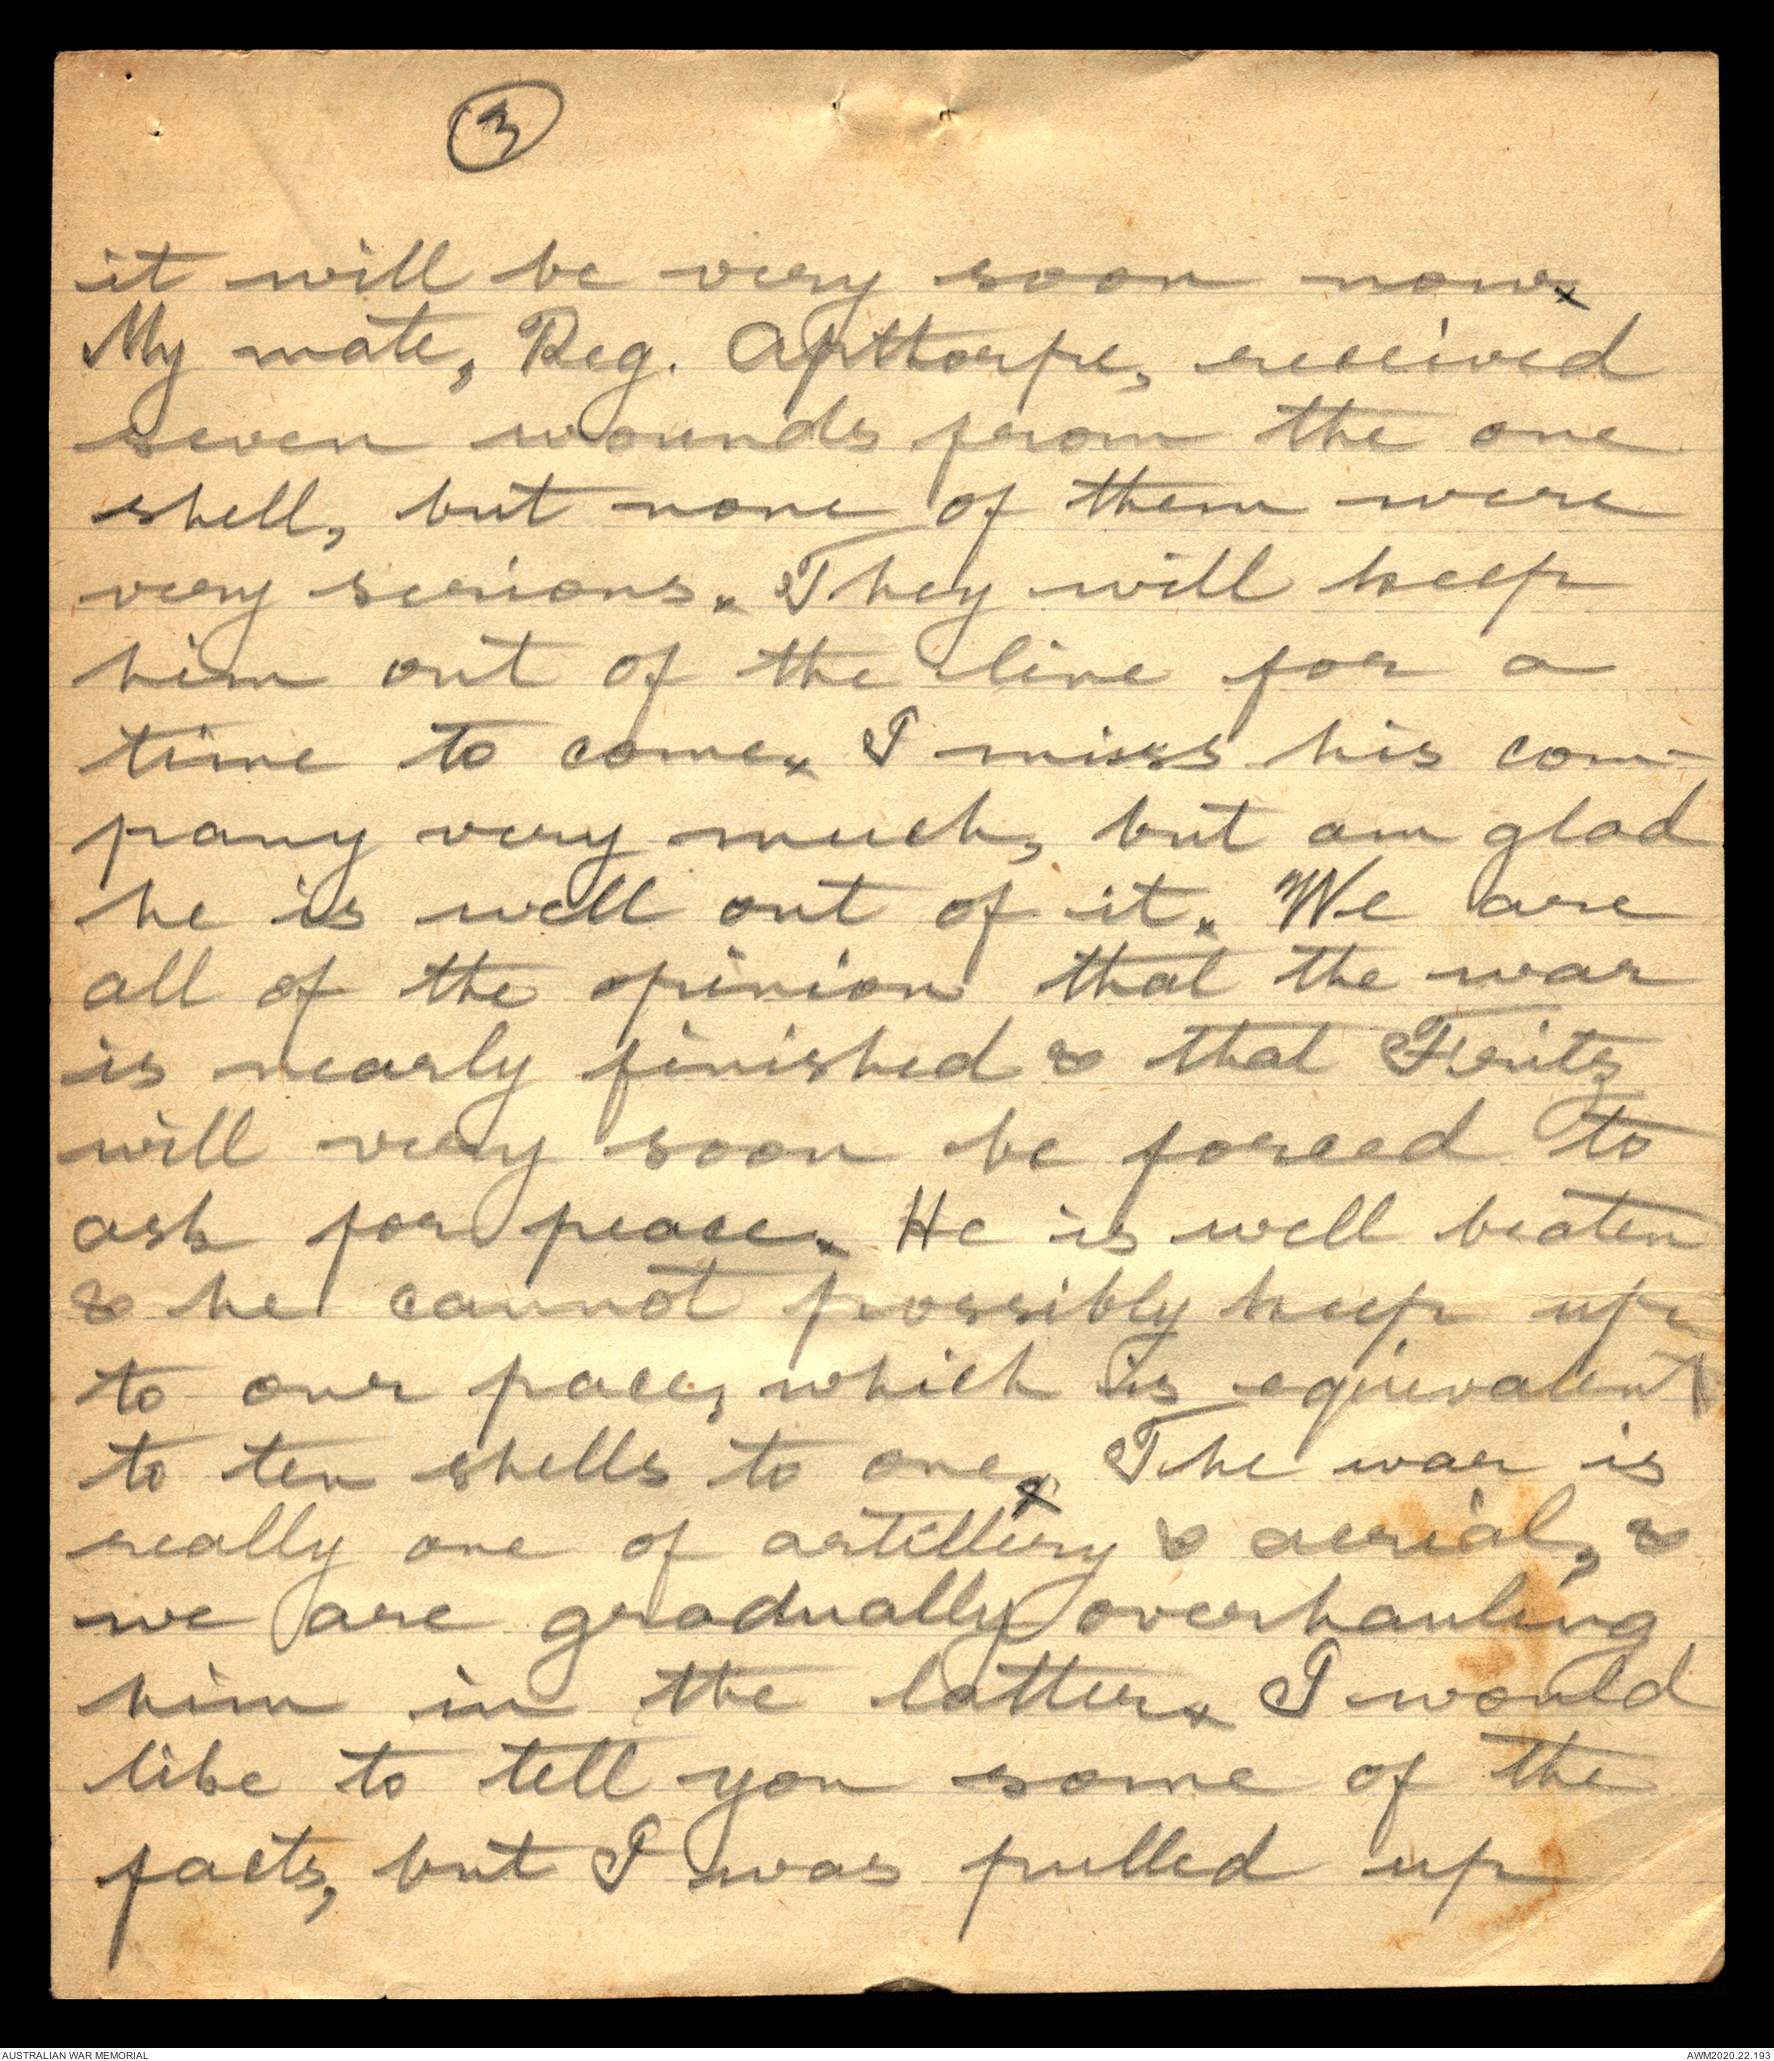 3
it will be very soon now x
My mate, Reg. Apthorpe, received
seven wounds from the one
shell, but none of them were
very serious x They will keep
him out of the line for a
time to come x I miss his com-
pany very much, but am glad
he is well out of it x We are
all of the opinion that the war
is nearly finished & that Fritz
will very soon be forced to
ask for peace x He is well beaten
& he cannot possibly keep up
to our pace, which is equivalent
to ten shells to one x The war is
really one of artillery & aerial, &
we are gradually overhauling
him in the latter x I would
like to tell you some of the
facts, but I was pulled up
AUSTRALIAN WAR MEMORIAL
AWM2020.22.193